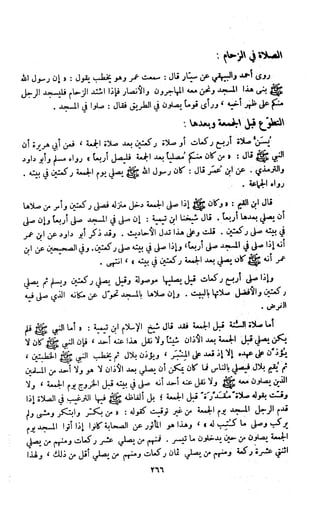 الصلاة في الزحام :
روى أحمد والبيهقي عن سيار قال : سمعت عمر وهو يخطب يقول : « إن رسول الله
ﷺ بنى هذا المسجد ونحن معه المهاجرون والأنصار فإذا اشتد الزحام فليسجد الرجل
منكم على ظهر أخيه » ورأى قوماً يصلون في الطريق فقال : صلوا في المسجد .
التطوع قبل الجمعة وبعدها :
يسن صلاة أربع ركعات أو صلاة ركعتين بعد صلاة الجمعة ، فعن أبي هريرة أن
النبي ﷺ قال : « من كان منكم مصلياً بعد الجمعة فليصل أربعاً » رواه مسلم وأبو داود
والترمذي . عن ابن عمر قال : كان رسول الله ﷺ يصلي يوم الجمعة ركعتين في بيته .
رواه الجماعة .
قال ابن القيم : « وكان ﷺ إذا صلى الجمعة دخل منزله فصلى ركعتين وأمر من صلاها
أن يصلي بعدها أربعاً . قال شيخنا ابن تيمية : إن صلى في المسجد صلى أربعاً وإن صلى
في بيته صلى ركعتين . قلت وعلى هذا تدل الأحاديث . وقد ذكر أبو داود عن ابن عمر
أنه إذا صلى في المسجد صلى أربعاً ، وإذا صلى في بيته صلى ركعتين . وفي الصحيحين عن ابن
عمر أنه ﷺ كان يصلي بعد الجمعة ركعتين في بيته » ، انتهى .
وإذا صلى أربع ركعات قيل يصليها موصولة وقيل يصلي ركعتين ويسلم ثم يصلي
ركعتين والأفضل صلاتها بالبيت . وإن صلاها بالمسجد تحول عن مكانه الذي صلى فيه
الفرض .
أما صلاة السنة قبل الجمعة فقد قال شيخ الإسلام ابن تيمية : « أما النبي ﷺ فلم
يكن يصلي قبل الجمعة بعد الأذان شيئاً ولا نقل هذا عنه أحد ، فإن النبي ﷺ كان لا
يؤذن على عهده إلا إذا قعد على المنبر ، ويؤذن بلال ثم يخطب النبي ﷺ الخطبتين ،
ثم يقيم بلال فيصلي بالناس فما كان يمكن أن يصلي بعد الأذان لا هو ولا أحد من المسلمين
الذين يصلون معه ﷺ ولا نقل عنه أحد أنه صلى في بيته قبل الخروج يوم الجمعة ، ولا
وقت بقوله صلاة مقدرة قبل الجمعة ؛ بل ألفاظه ﷺ فيها الترغيب في الصلاة إذا
قدم الرجل المسجد يوم الجمعة من غير توقيت كقوله : « من بكر وابتكر ومشى ولم
يركب وصلى ما كتب له » ، وهذا هو المأثور عن الصحابة كانوا إذا أتوا المسجد يوم
الجمعة يصلون من حين يدخلون ما تيسر . فمنهم من يصلي عشر ركعات ومنهم من يصلي
اثنتي عشرة ركعة ومنهم من يصلي ثمان ركعات ومنهم من يصلي أقل من ذلك ، ولهذا
٢٦٦